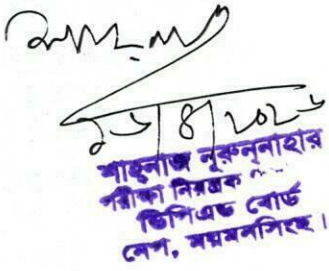 ১৬/৪/২০২৬
শাহনাজ নূরুন্‌নাহার
পরীক্ষা নিয়ন্ত্রক
ডিপিএড বোর্ড
নেপ, ময়মনসিংহ।